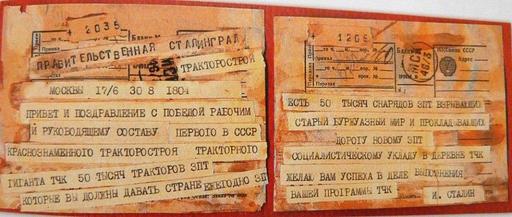 2035
ПРАВИТЕЛЬСТВЕННАЯ СТАЛИНГРАД
ТРАКТОРОСТРОЙ
МОСКВЫ 17/6 30 8 1804
ПРИВЕТ И ПОЗДРАВЛЕНИЕ С ПОБЕДОЙ РАБОЧИМ
И РУКОВОДЯЩЕМУ СОСТАВУ ПЕРВОГО В СССР
КРАСНОЗНАМЕННОГО ТРАКТОРОСТРОЯ ТРАКТОРНОГО
ГИГАНТА ТЧК 50 ТЫСЯЧ ТРАКТОРОВ ЗПТ
КОТОРЫЕ ВЫ ДОЛЖНЫ ДАВАТЬ СТРАНЕ ЕЖЕГОДНО ЗП
1206
ЕСТЬ 50 ТЫСЯЧ СНАРЯДОВ ЗПТ ВЗРЫВАЮЩИХ
СТАРЫЙ БУРЖУАЗНЫЙ МИР И ПРОКЛАДЫВАЮЩИХ
ДОРОГУ НОВОМУ ЗПТ
СОЦИАЛИСТИЧЕСКОМУ УКЛАДУ В ДЕРЕВНЕ ТЧК
ЖЕЛАЮ ВАМ УСПЕХА В ДЕЛЕ ВЫПОЛНЕНИЯ
ВАШЕЙ ПРОГРАММЫ ТЧК И. СТАЛИН